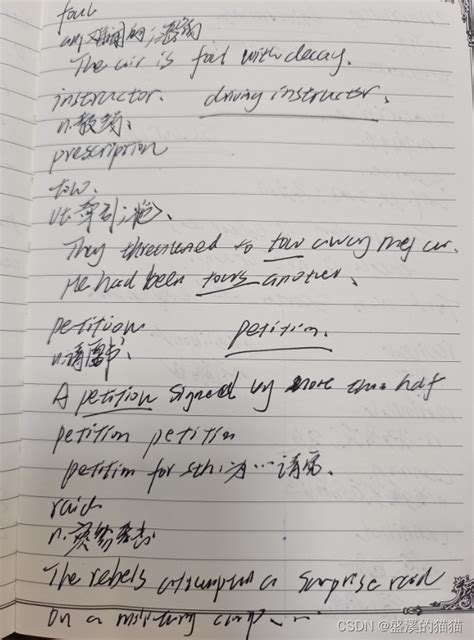 foul
The air is foul with decay.
instructor. driving instructor.
n.教练、
prescription
tow.
vt.牵引;拖、
They threatened to tow away my car.
He had been tows another、
petition petition.
n.请愿书、
A petition signed by more than half
petition petition
petition for sth:为…请愿、
raid
n.突袭
The rebels a surprise raid
On a military camp、
CSDN @盛溪的猫猫